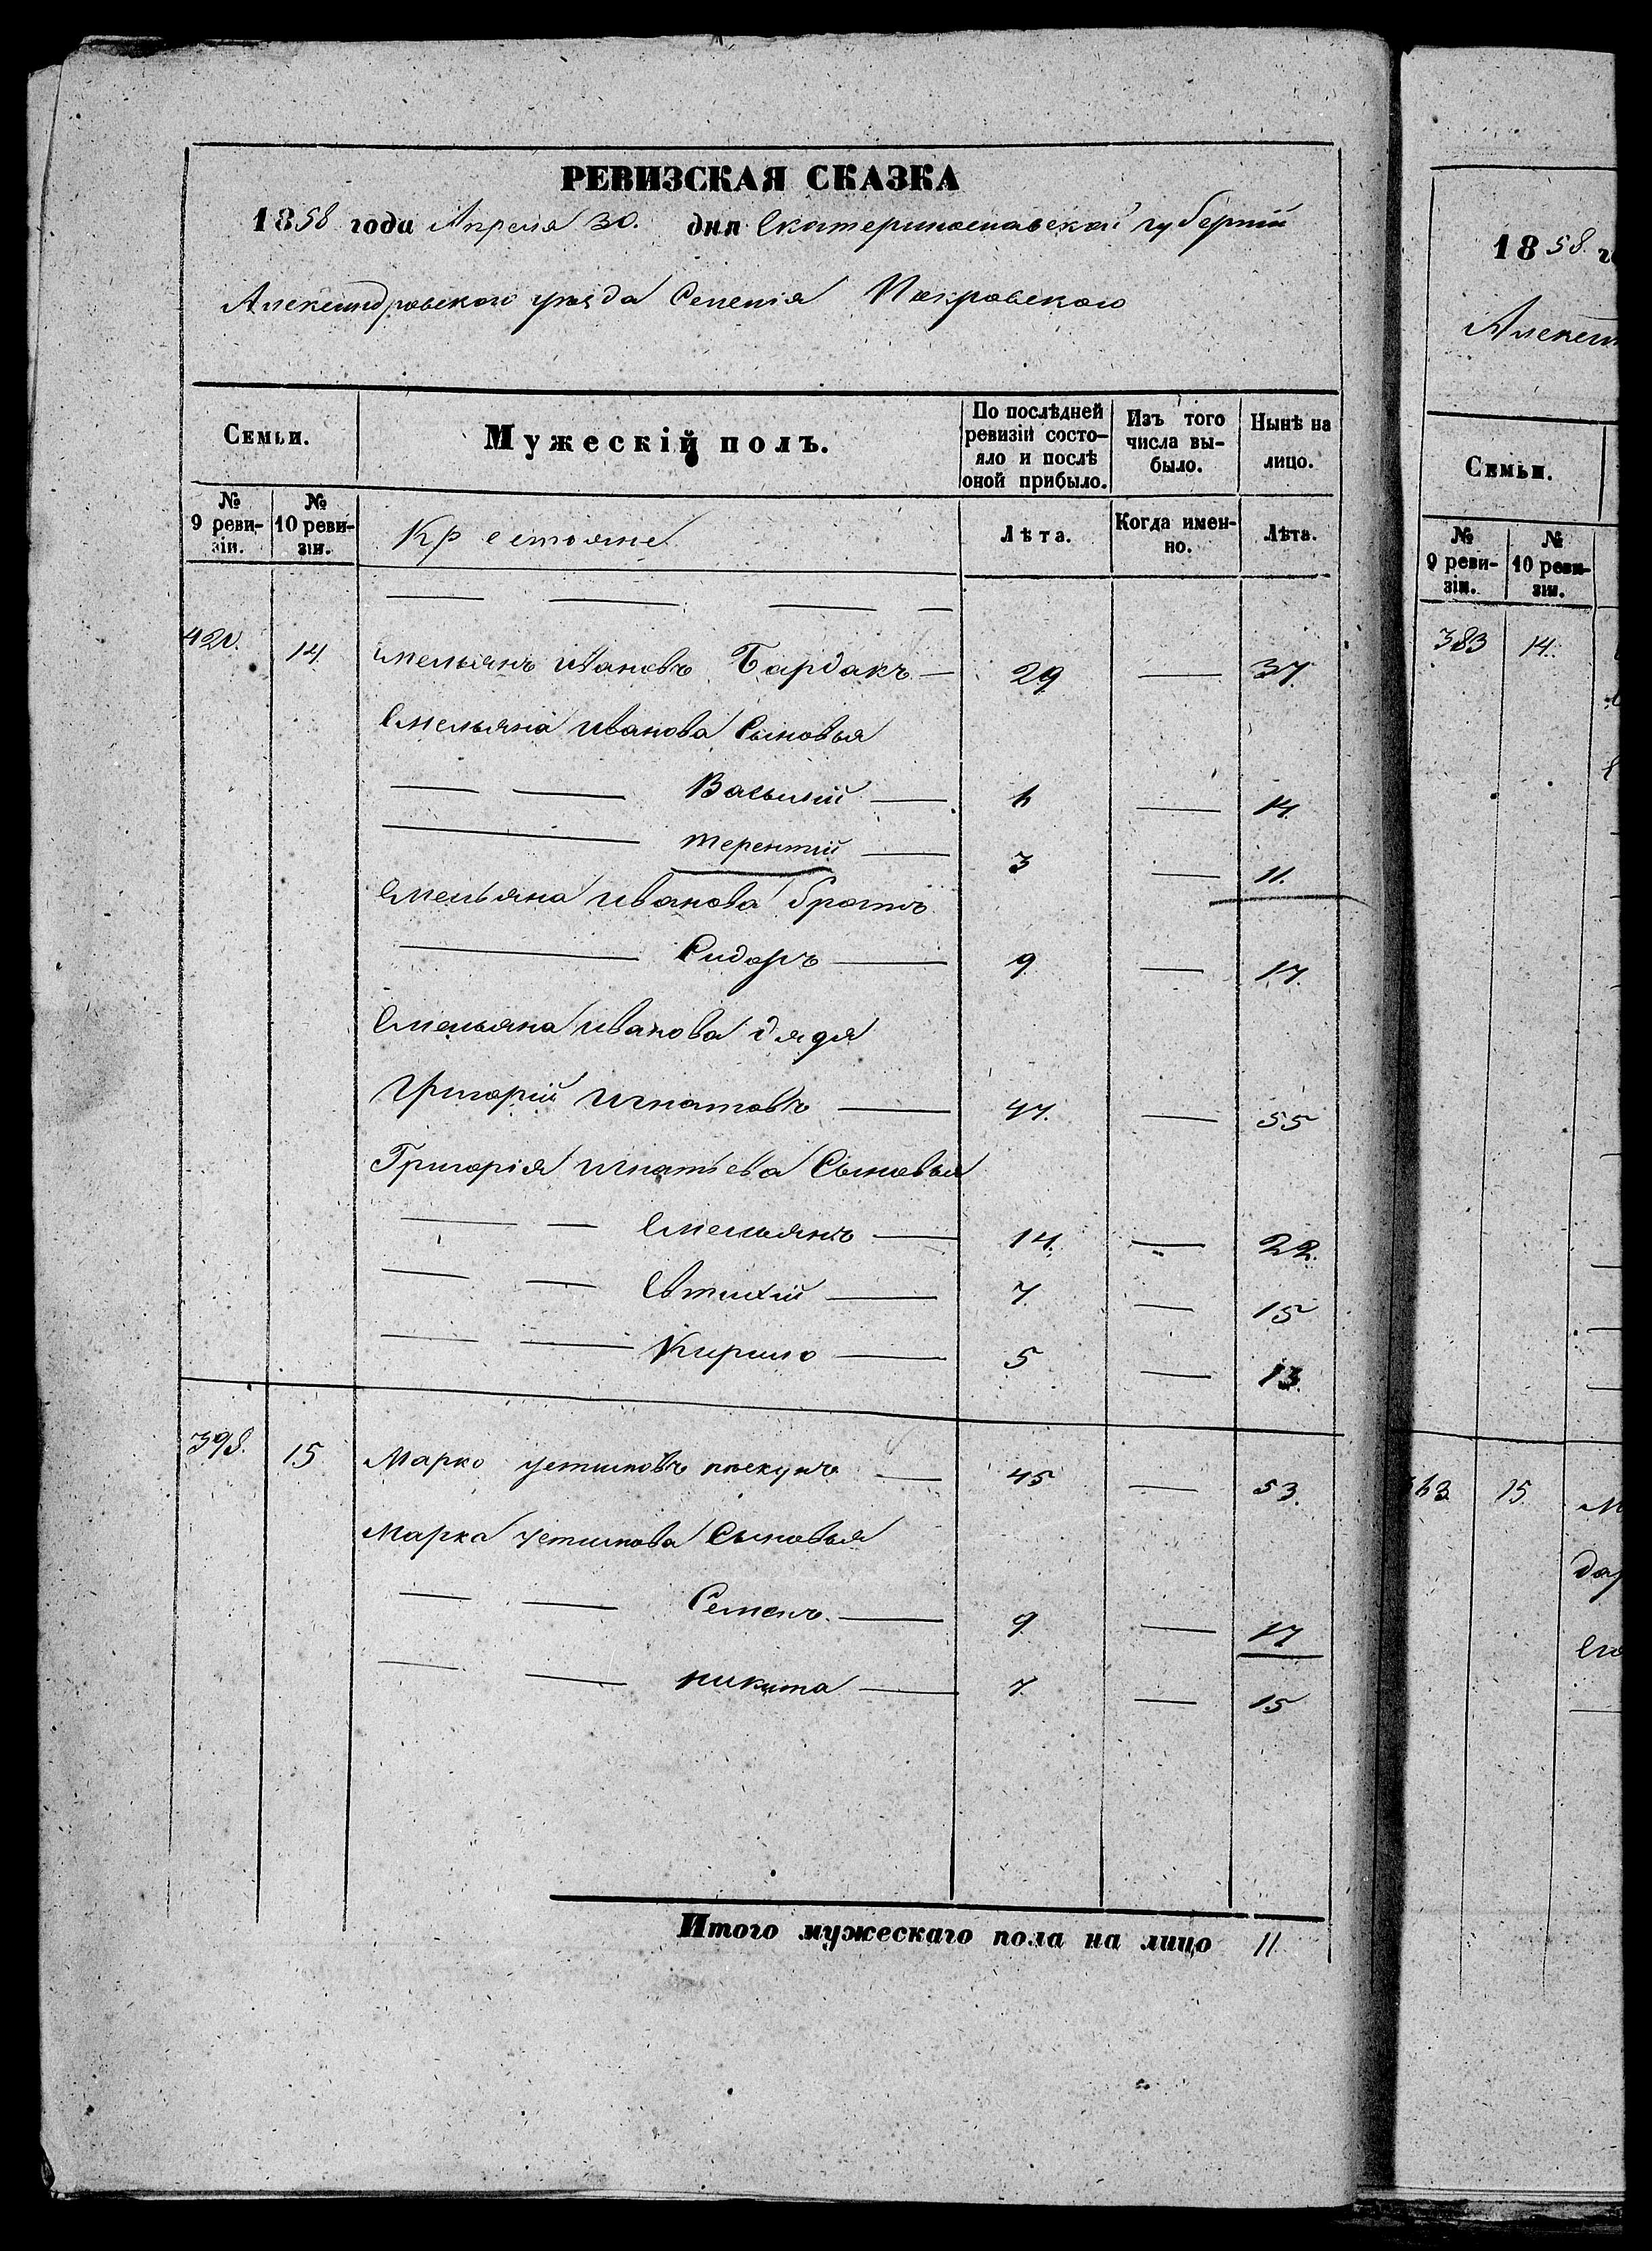 РЕВИЗСКАЯ СКАЗКА
1858 года Апреля 30. дня Екатеринославской губернии
Александровского уезда Селения Покровского
Семьи. Мужескій полъ. По послѣдней ревизіи состояло и послѣ оной прибыло. Изъ того числа выбыло. Нынѣ на лицо.
№ 9 ревизіи. № 10 ревизіи. Крестьяне Лѣта. Когда именно. Лѣта.
420. 14 Емельянъ Ивановъ Бардакъ — 29 — 37.
Емельяна Иванова Сыновья
— — Васьилій — 6 — 14.
— Терентій — 3 — 11.
Емельяна Иванова братъ
— Сидоръ — 9 — 17.
Емельяна Иванова дядя
Григорій Игнатовъ — 47. — 55
Григорія Игнатьева Сыновья
— — Емельянъ — 14. — 22.
— — Евтихій — 7. — 15
— — Кирило — 5 — 13.
398. 15 Марко Устиновъ — 45 — 53.
Марка Устинова Сыновья
— — Семенъ. — 9. — 17
— — Никита — 7. — 15
Итого мужескаго пола на лицо 11.
1858. г
Алексан
Семьи.
№ 9 ревизіи. № 10 ревизіи.
383 14.
15. М
дар
Его